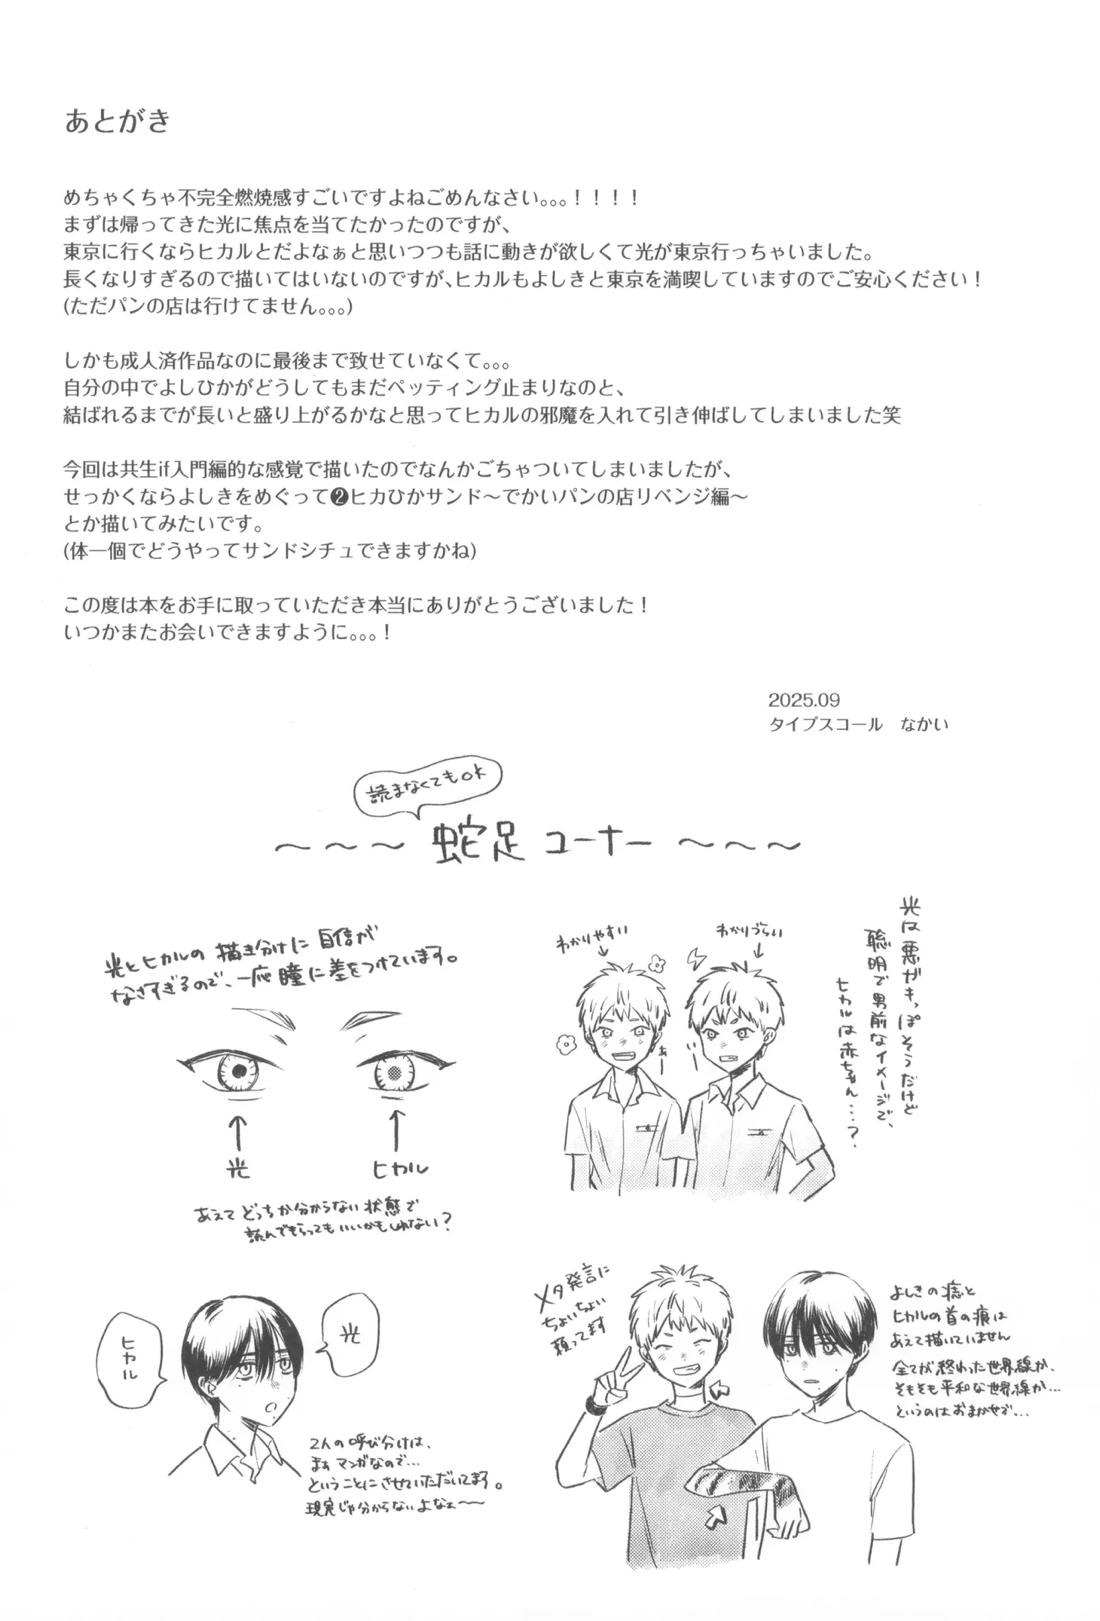 あとがき
めちゃくちゃ不完全燃焼感すごいですよねごめんなさい。。。！！！！
まずは帰ってきた光に焦点を当てたかったのですが、
東京に行くならヒカルとだよなぁと思いつつも話に動きが欲しくて光が東京行っちゃいました。
長くなりすぎるので描いてはいないのですが、ヒカルもよしきと東京を満喫していますのでご安心ください！
(ただパンの店は行けてません。。。)
しかも成人済作品なのに最後まで致せていなくて。。。
自分の中でよしひかがどうしてもまだペッティング止まりなのと、
結ばれるまでが長いと盛り上がるかなと思ってヒカルの邪魔を入れて引き伸ばしてしまいました笑
今回は共生if入門編的な感覚で描いたのでなんかごちゃついてしまいましたが、
せっかくならよしきをめぐって❷ヒカひかサンド〜でかいパンの店リベンジ編〜
とか描いてみたいです。
(体一個でどうやってサンドシチュできますかね)
この度は本をお手に取っていただき本当にありがとうございました！
いつかまたお会いできますように。。。！
2025.09
タイプスコール　なかい
読まなくてもOK
〜〜〜 蛇足コーナー 〜〜〜
光とヒカルの描き分けに自信が
なさすぎるので、一応瞳に差をつけています。
光
ヒカル
あえてどっちか分からない状態で
読んでもらってもいいかもしれない？
わかりやすい
わかりづらい
あ
い
光は悪ガキっぽそうだけど
聡明で男前なイメージで、
ヒカルは赤ちゃん…？
ヒカル
光
2人の呼び分けは、
まぁマンガなので…
ということにさせていただいてます。
現実じゃ分からないよなぁ〜〜
メタ発言に
ちょいちょい
頼ってます
よしきの痣と
ヒカルの首の痕は
あえて描いていません
全てが終わった世界線か、
そもそも平和な世界線か…
というのはおまかせで…